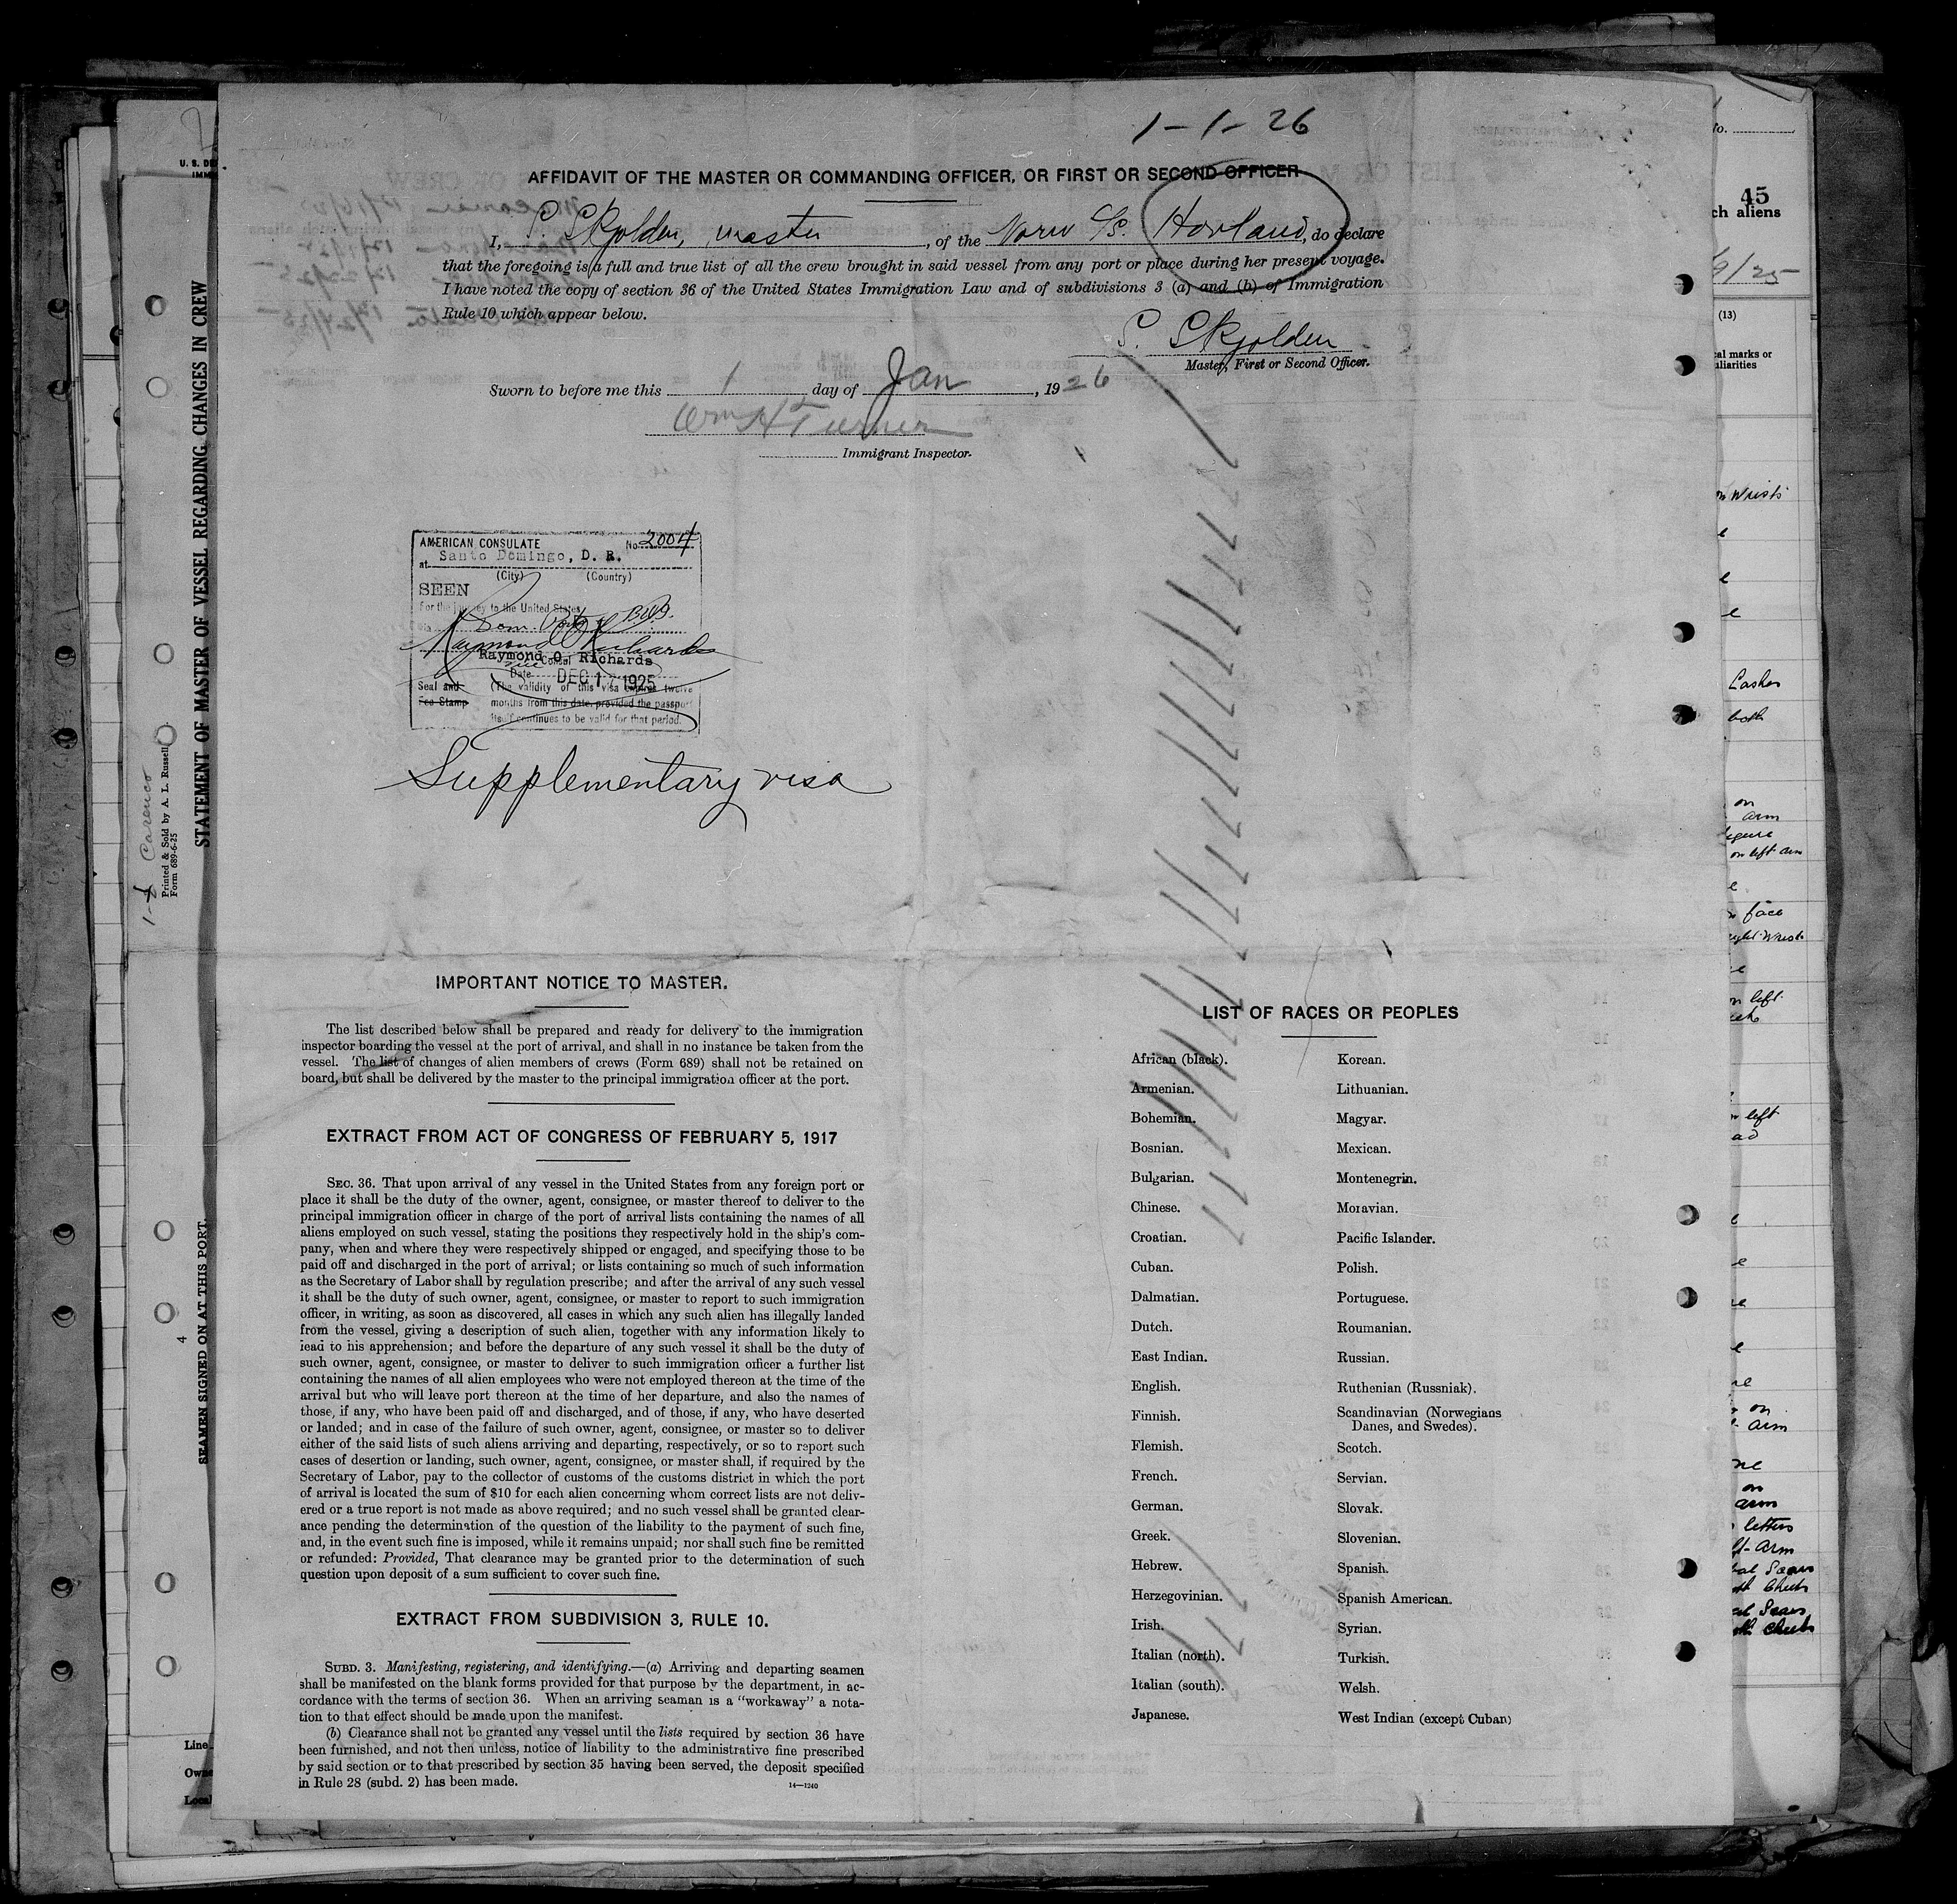 1-1-26
AFFIDAVIT OF THE MASTER OR COMMANDING OFFICER, OR FIRST OR SECOND OFFICER
I, S. Skjolden, master, of the Norw S/S. Hovland, do declare
that the foregoing is a full and true list of all the crew brought in said vessel from any port or place during her present voyage.
I have noted the copy of section 36 of the United States Immigration Law and of subdivisions 3 (a) and (b) of Immigration
Rule 10 which appear below.
S. Skjolden
Master, First or Second Officer.
Sworn to before me this 1 day of Jan, 1926
Wm H Turner
Immigrant Inspector.
AMERICAN CONSULATE No. 2004
at Santo Domingo, D. R.
(City) (Country)
SEEN
For the journey to the United States
Raymond O. Richards
Consul
Date DEC 17 1925
Seal and (The validity of this visa expires twelve
Fee Stamp months from this date, provided the passport
itself continues to be valid for that period.
Supplementary visa
IMPORTANT NOTICE TO MASTER.
The list described below shall be prepared and ready for delivery to the immigration
inspector boarding the vessel at the port of arrival, and shall in no instance be taken from the
vessel. The list of changes of alien members of crews (Form 689) shall not be retained on
board, but shall be delivered by the master to the principal immigration officer at the port.
EXTRACT FROM ACT OF CONGRESS OF FEBRUARY 5, 1917
SEC. 36. That upon arrival of any vessel in the United States from any foreign port or
place it shall be the duty of the owner, agent, consignee, or master thereof to deliver to the
principal immigration officer in charge of the port of arrival lists containing the names of all
aliens employed on such vessel, stating the positions they respectively hold in the ship's com-
pany, when and where they were respectively shipped or engaged, and specifying those to be
paid off and discharged in the port of arrival; or lists containing so much of such information
as the Secretary of Labor shall by regulation prescribe; and after the arrival of any such vessel
it shall be the duty of such owner, agent, consignee, or master to report to such immigration
officer, in writing, as soon as discovered, all cases in which any such alien has illegally landed
from the vessel, giving a description of such alien, together with any information likely to
lead to his apprehension; and before the departure of any such vessel it shall be the duty of
such owner, agent, consignee, or master to deliver to such immigration officer a further list
containing the names of all alien employees who were not employed thereon at the time of the
arrival but who will leave port thereon at the time of her departure, and also the names of
those, if any, who have been paid off and discharged, and of those, if any, who have deserted
or landed; and in case of the failure of such owner, agent, consignee, or master so to deliver
either of the said lists of such aliens arriving and departing, respectively, or so to report such
cases of desertion or landing, such owner, agent, consignee, or master shall, if required by the
Secretary of Labor, pay to the collector of customs of the customs district in which the port
of arrival is located the sum of $10 for each alien concerning whom correct lists are not deliv-
ered or a true report is not made as above required; and no such vessel shall be granted clear-
ance pending the determination of the question of the liability to the payment of such fine,
and, in the event such fine is imposed, while it remains unpaid; nor shall such fine be remitted
or refunded: Provided, That clearance may be granted prior to the determination of such
question upon deposit of a sum sufficient to cover such fine.
EXTRACT FROM SUBDIVISION 3, RULE 10.
SUBD. 3. Manifesting, registering, and identifying.—(a) Arriving and departing seamen
shall be manifested on the blank forms provided for that purpose by the department, in ac-
cordance with the terms of section 36. When an arriving seaman is a "workaway" a nota-
tion to that effect should be made upon the manifest.
(b) Clearance shall not be granted any vessel until the lists required by section 36 have
been furnished, and not then unless, notice of liability to the administrative fine prescribed
by said section or to that prescribed by section 35 having been served, the deposit specified
in Rule 28 (subd. 2) has been made.
14—1240
LIST OF RACES OR PEOPLES
African (black).
Armenian.
Bohemian.
Bosnian.
Bulgarian.
Chinese.
Croatian.
Cuban.
Dalmatian.
Dutch.
East Indian.
English.
Finnish.
Flemish.
French.
German.
Greek.
Hebrew.
Herzegovinian.
Irish.
Italian (north).
Italian (south).
Japanese.
Korean.
Lithuanian.
Magyar.
Mexican.
Montenegrin.
Moravian.
Pacific Islander.
Polish.
Portuguese.
Roumanian.
Russian.
Ruthenian (Russniak).
Scandinavian (Norwegians
Danes, and Swedes).
Scotch.
Servian.
Slovak.
Slovenian.
Spanish.
Spanish American.
Syrian.
Turkish.
Welsh.
West Indian (except Cuban)
STATEMENT OF MASTER OF VESSEL REGARDING CHANGES IN CREW
Printed & Sold by A. L. Russell
Form 689-6-25
SEAMEN SIGNED ON AT THIS PORT.
4
U. S. DE
IMM
Line
Owne
Local
45
ch aliens
9/25
(13)
cal marks or
uliarities